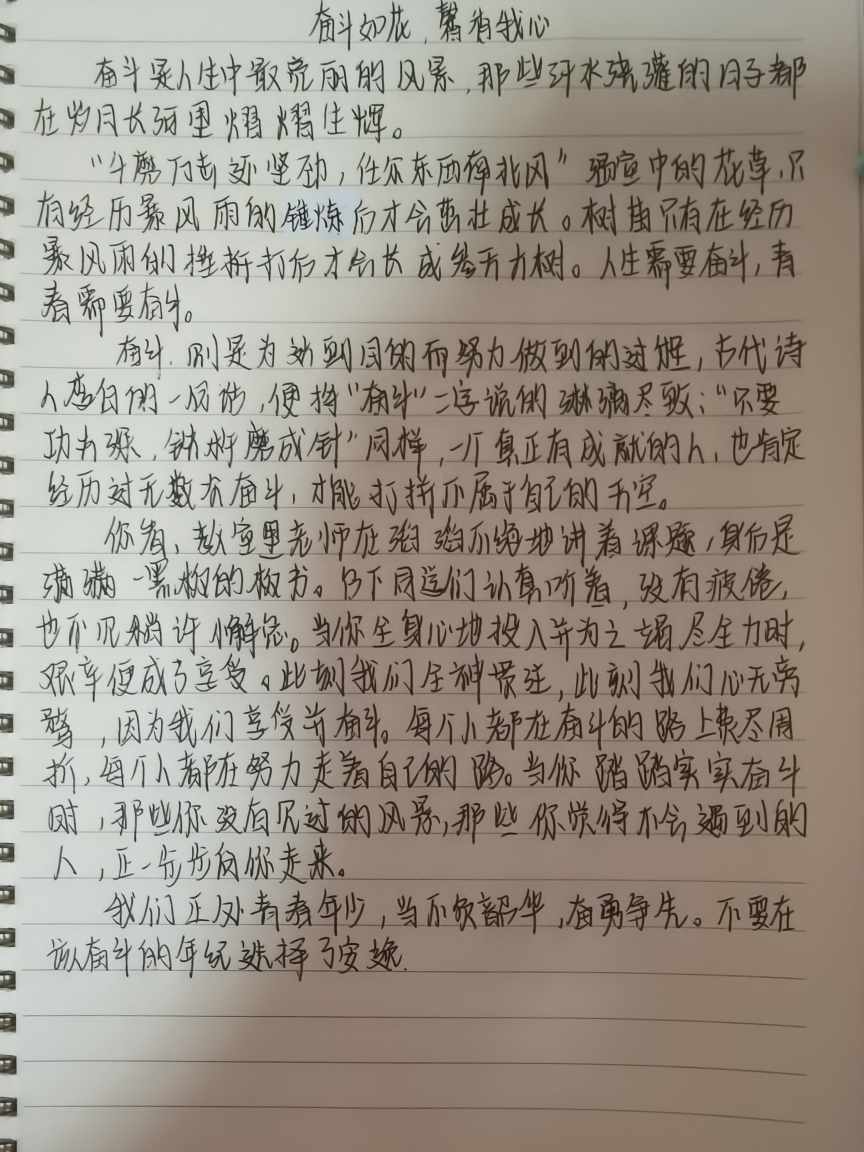 奋斗如花，馨有我心
奋斗是人生中最亮丽的风景，那些汗水浇灌的日子都
在岁月长河里熠熠生辉。
“千磨万击还坚劲，任尔东西南北风”温室中的花草，只
有经历暴风雨的锤炼后才会茁壮成长。树苗只有在经历
暴风雨的挫折打后才会长成参天大树。人生需要奋斗，青
春需要奋斗。
奋斗，则是为达到目的而努力做到的过程，古代诗
人李白的一句诗，便将“奋斗”二字说的淋漓尽致；“只要
功夫深，铁杵磨成针”同样，一个真正有成就的人，也肯定
经历过无数次奋斗，才能打拼下属于自己的天空。
你看，教室里老师在滔滔不绝地讲着课题，身后是
满满一黑板的板书。台下同学们认真听着，没有疲倦，
也不见稍许懈怠。当你全身心地投入并为之竭尽全力时，
艰辛便成了享受。此刻我们全神贯注，此刻我们心无旁
骛，因为我们享受并奋斗。每个人都在奋斗的路上费尽周
折，每个人都在努力走着自己的路。当你踏踏实实奋斗
时，那些你没有见过的风景，那些你觉得不会遇到的
人，正一步步向你走来。
我们正处青春年少，当不负韶华，奋勇争先。不要在
该奋斗的年纪选择了安逸.